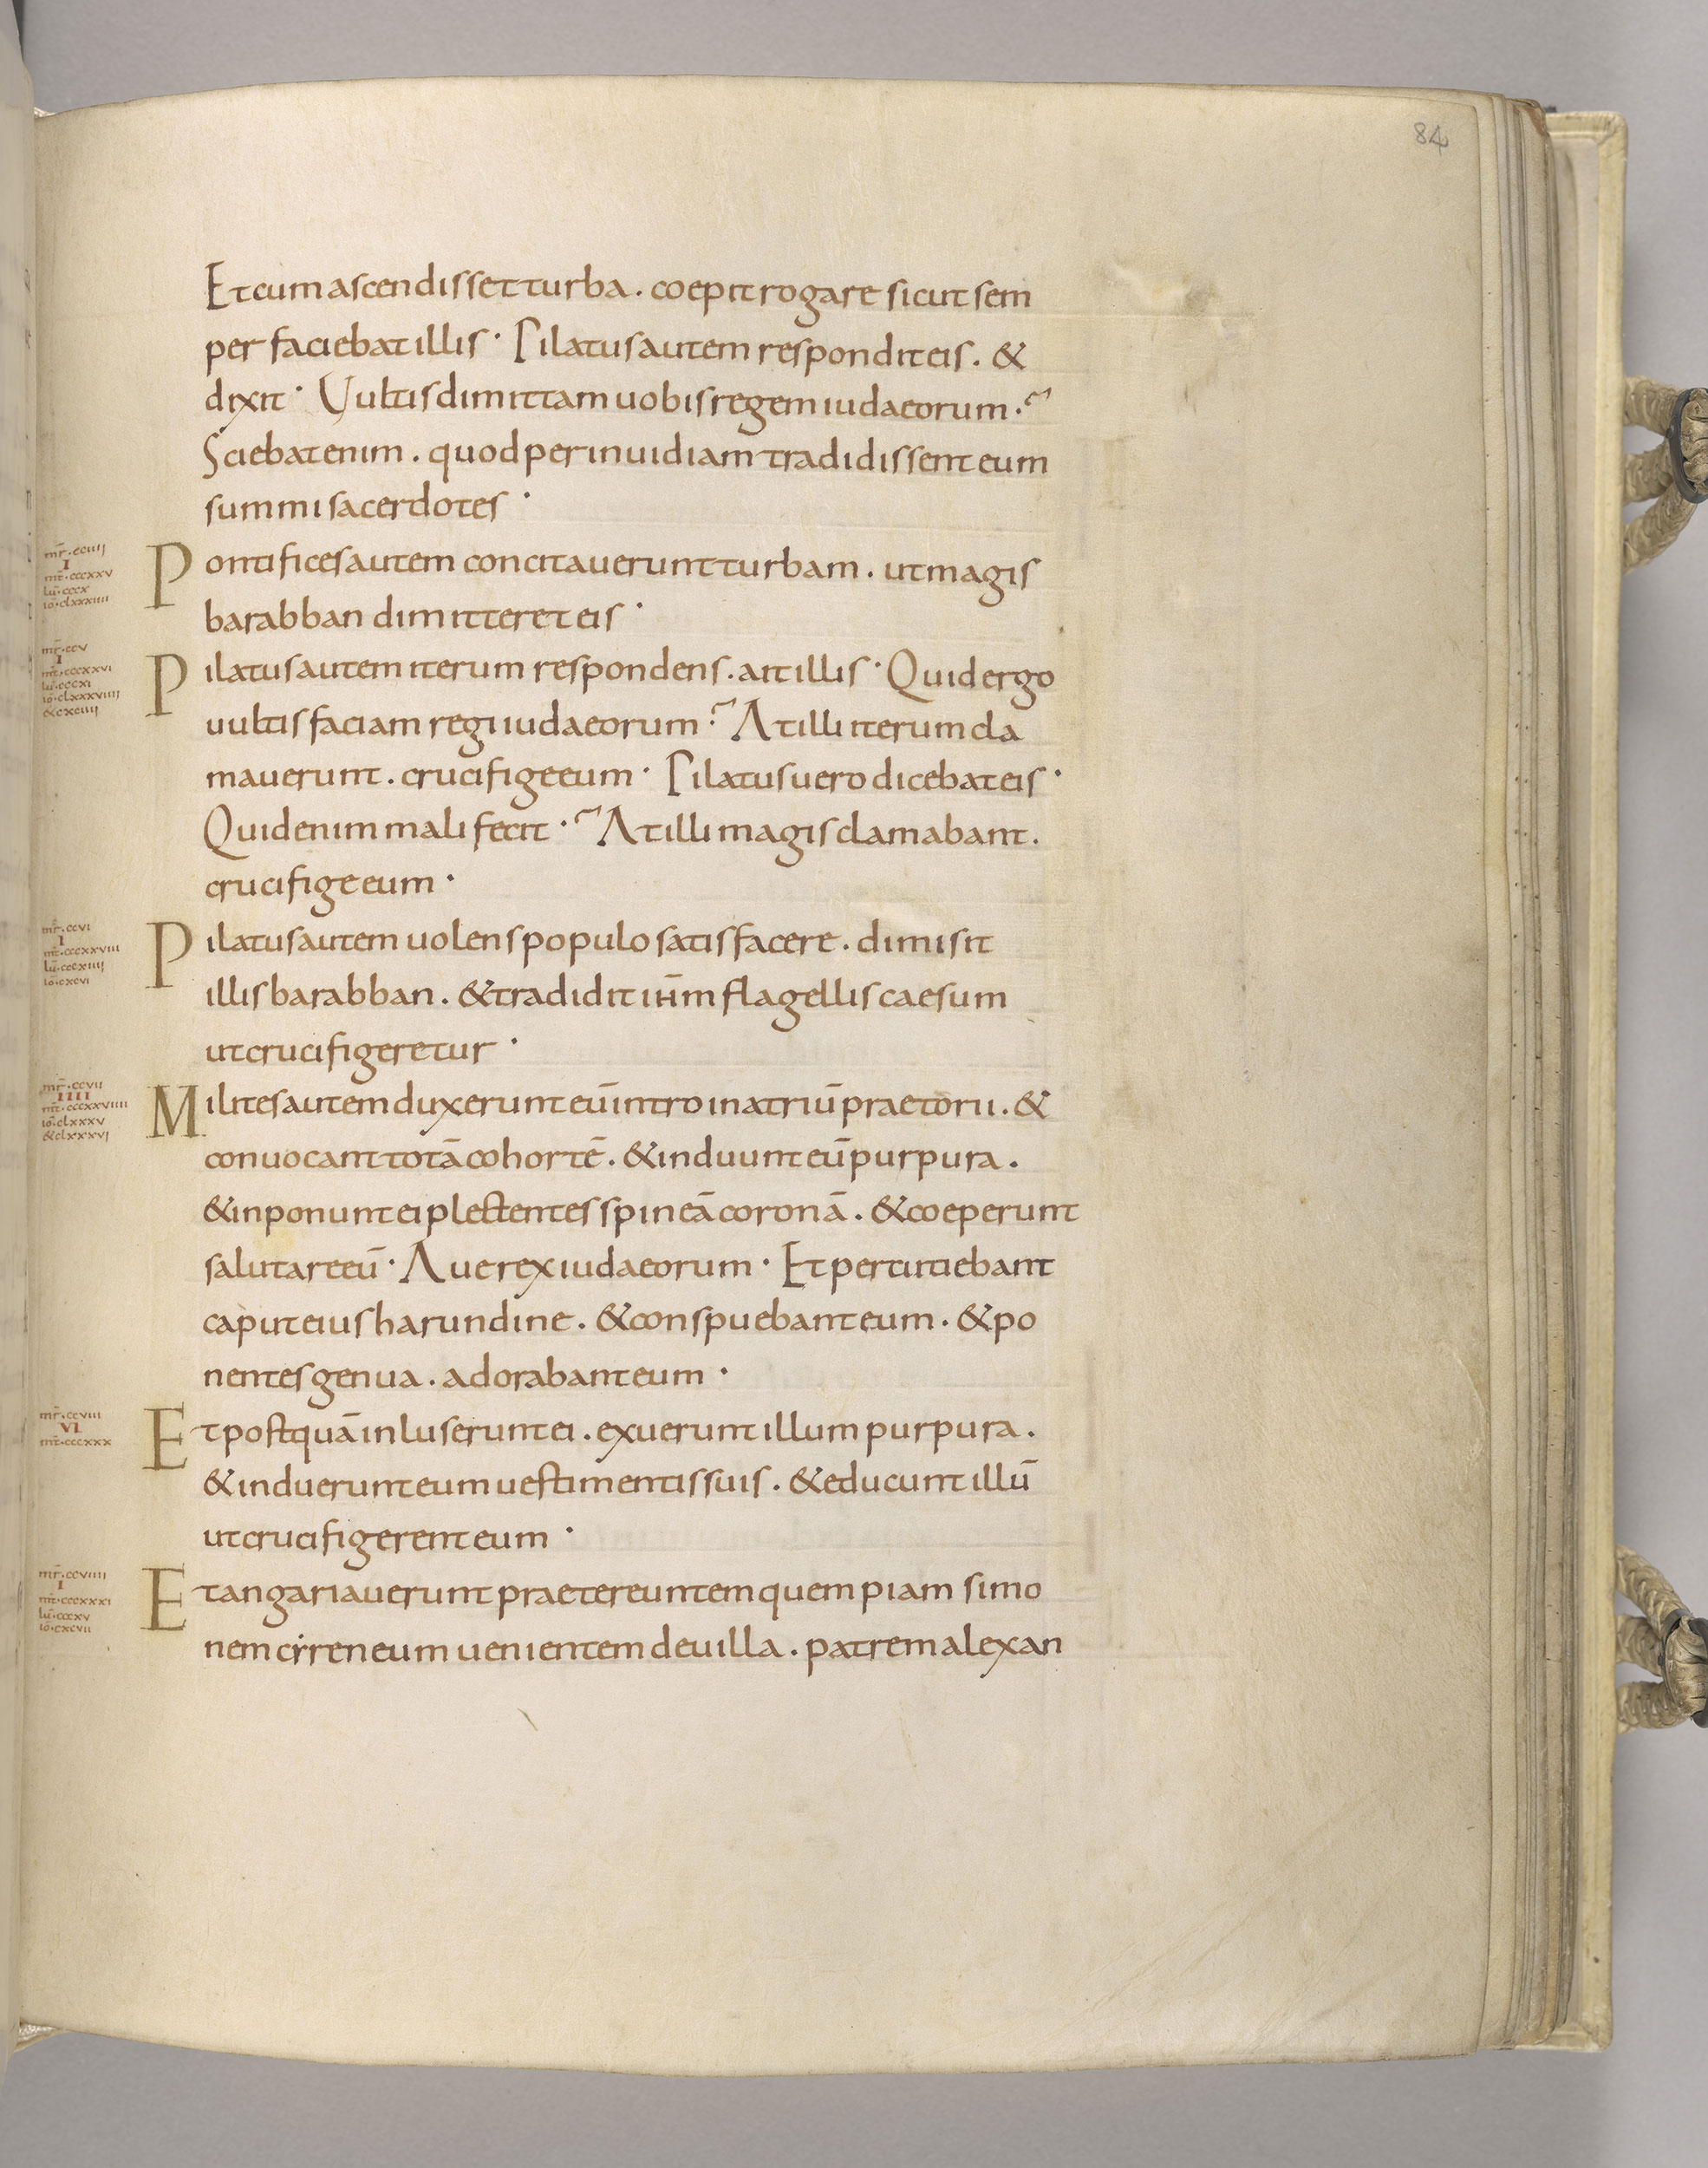 84
Et cum ascendisset turba . coepit rogare sicut sem
per faciebat illis · Pilatus autem respondit eis . &
dixit · Uultis dimittam uobis regem iudaeorum ·?
Sciebat enim . quod per inuidiam tradidissent eum
summi sacerdotes ·
mr̄ · cciiii
I
mt̄ · cccxxv
lū · cccx
iō · clxxxiiii
Pontifices autem concitauerunt turbam . ut magis
barabban dimitteret eis ·
mr̄ · ccv
I
mt̄ · cccxxvi
lū · cccxi
iō · clxxxviiii
& cxciiii
Pilatus autem iterum respondens . ait illis · Quid ergo
uultis faciam regi iudaeorum ·? At illi iterum cla
mauerunt . crucifige eum · Pilatus uero dicebat eis ·
Quid enim mali fecit ·? At illi magis clamabant .
crucifige eum ·
mr̄ · ccvi
I
mt̄ · cccxxviii
lū · cccxiiii
iō · cxcvi
Pilatus autem uolens populo satisfacere . dimisit
illis barabban . & tradidit ih̄m flagellis caesum
ut crucifigeretur ·
mr̄ · ccvii
IIII
mt̄ · cccxxviiii
iō · clxxxv
& clxxxvi
Milites autem duxerunt eū intro in atriū praetorii . &
conuocant totā cohortē . & induunt eū purpura .
& inponunt ei plectentes spineā coronā . & coeperunt
salutare eū · Aue rex iudaeorum · Et percutiebant
caput eius harundine . & conspuebant eum . & po
nentes genua . adorabant eum ·
mr̄ · ccviii
VI
mt̄ · cccxxx
Et postquā inluserunt ei . exuerunt illum purpura .
& induerunt eum uestimentis suis . & educunt illū
ut crucifigerent eum ·
mr̄ · ccviiii
I
mt̄ · cccxxxi
lū · cccxv
iō · cxcvii
Et angariauerunt praetereuntem quempiam simo
nem cyreneum uenientem de uilla . patrem alexan